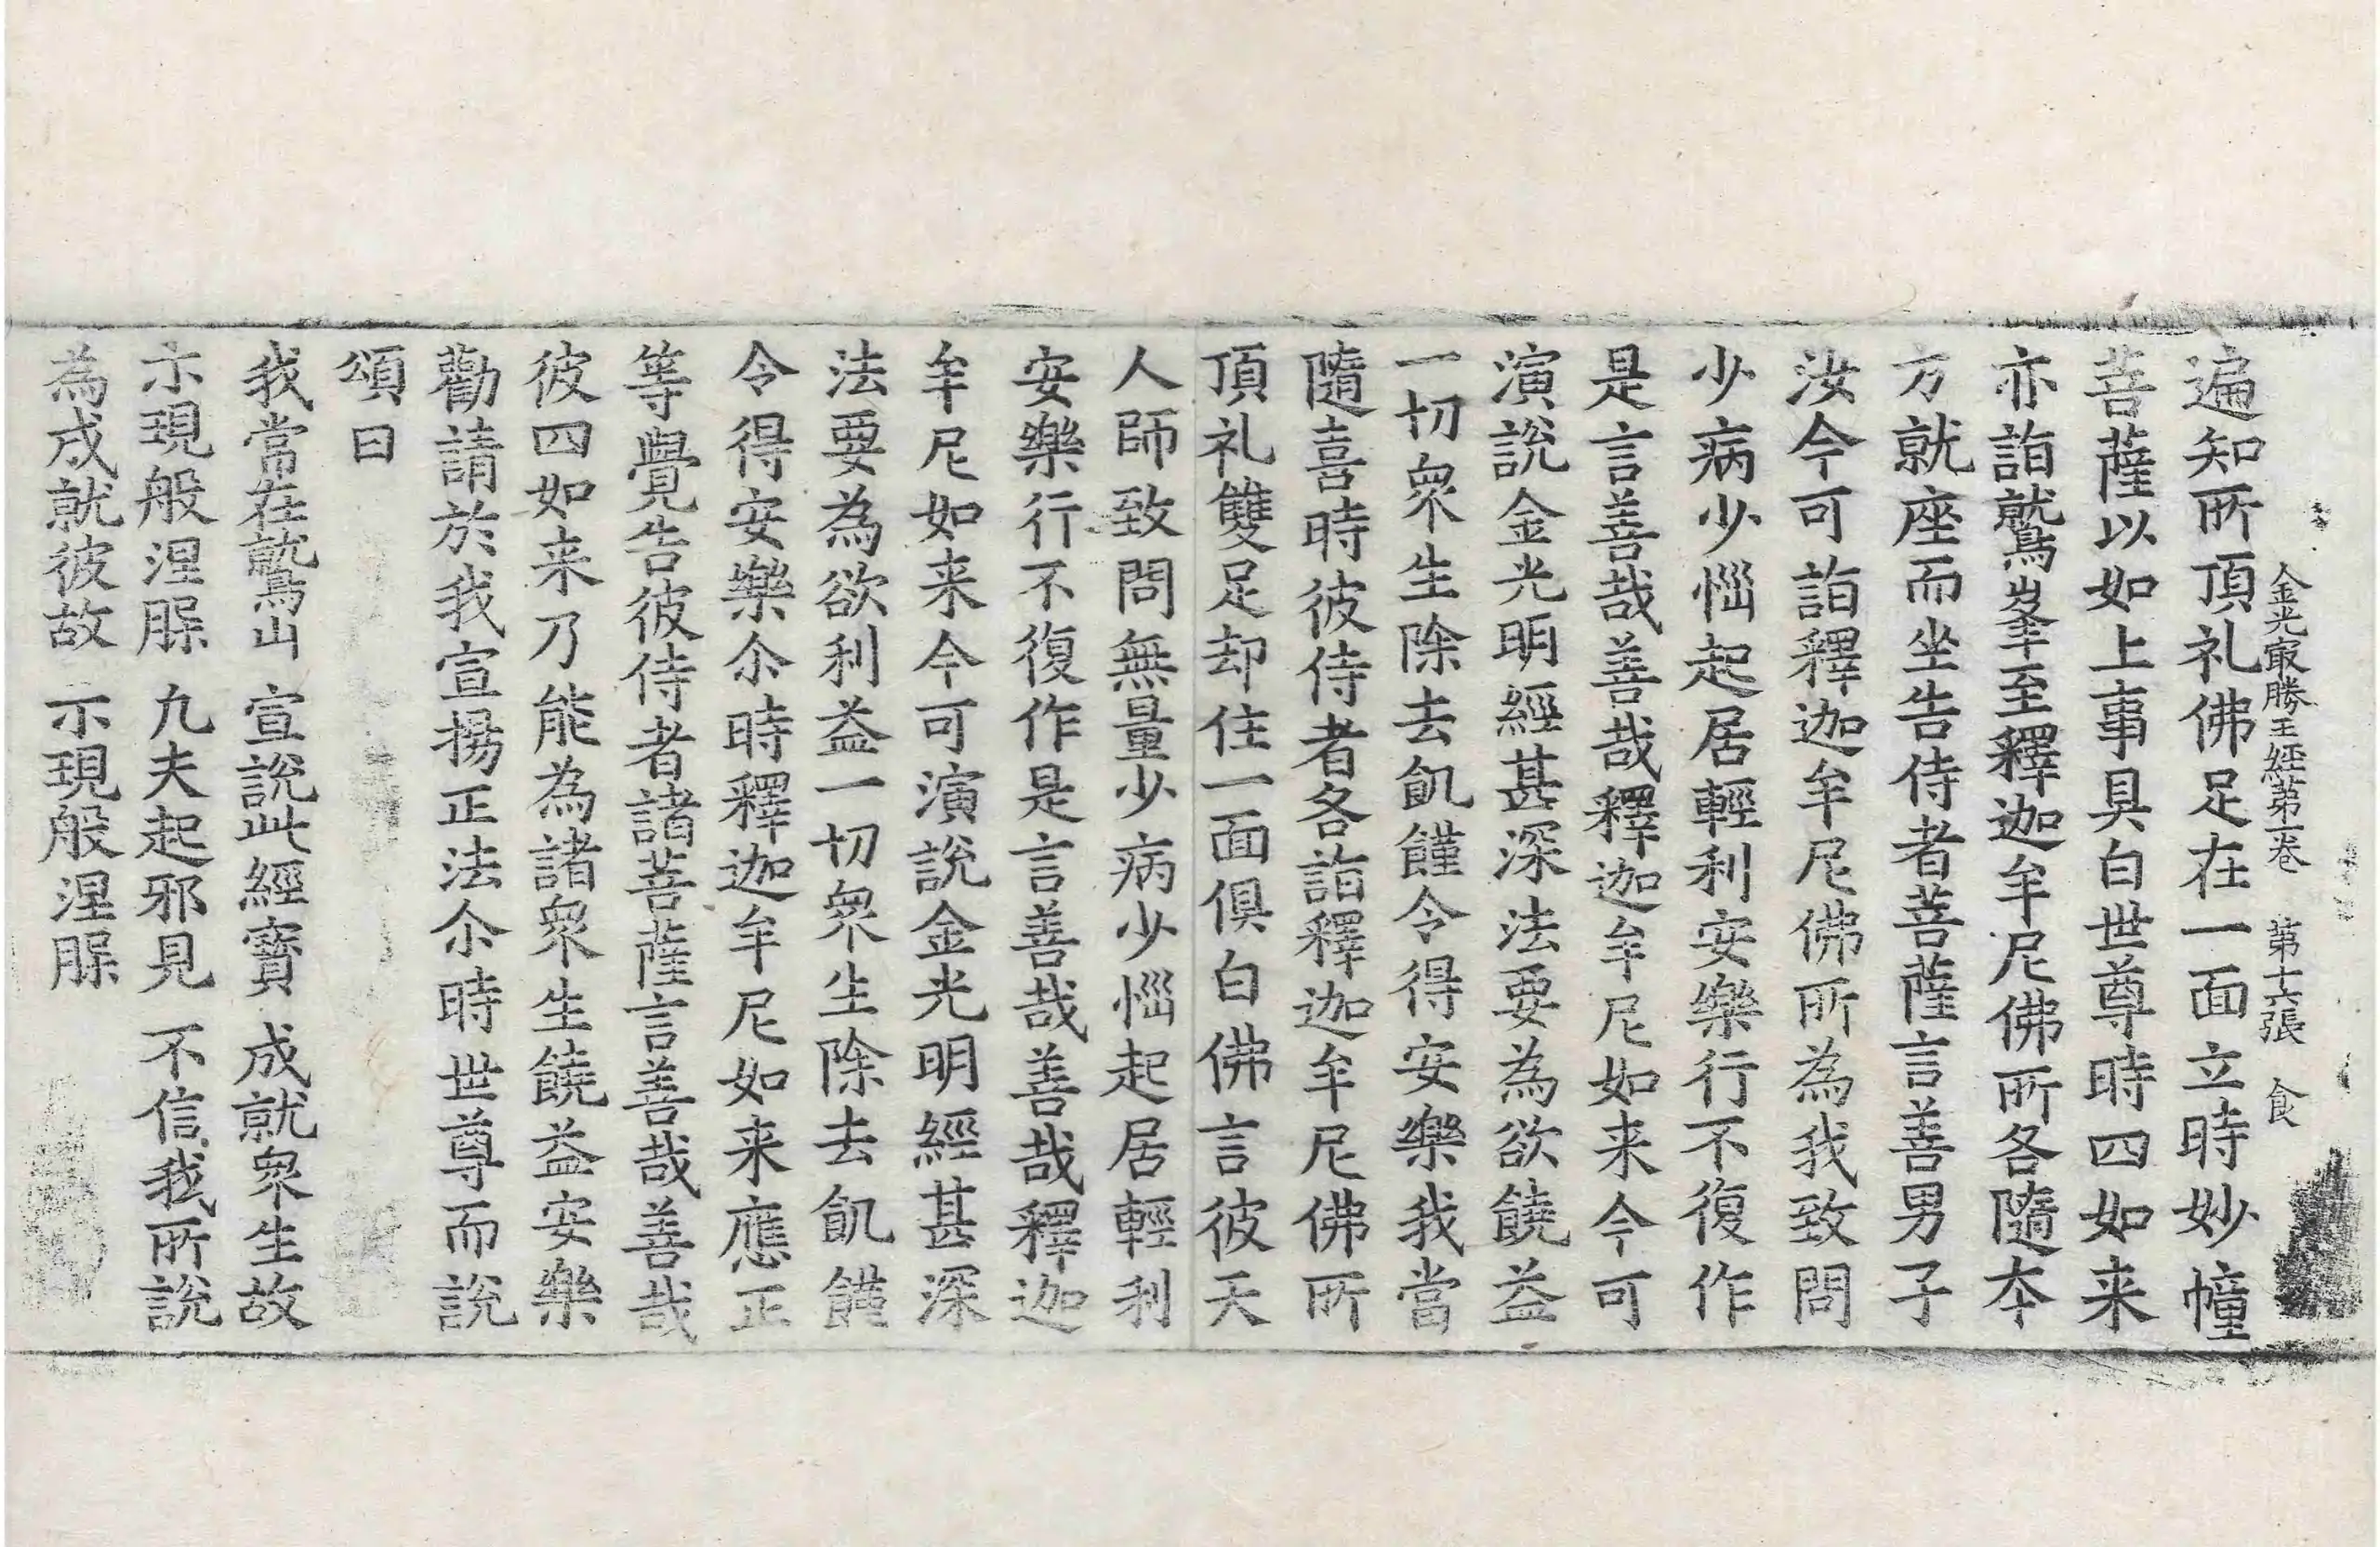 金光㝡勝王經第一卷 第十六張 食
遍知所頂礼佛足在一面立時妙幢
菩薩以如上事具白世尊時四如来
亦詣鷲峯至釋迦牟尼佛所各隨夲
方就座而坐告侍者菩薩言善男子
汝今可詣釋迦牟尼佛所為我致問
少病少惱起居輕利安樂行不復作
是言善哉善哉釋迦牟尼如来今可
演說金光明經甚深法要為欲饒益
一切衆生除去飢饉令得安樂我當
隨喜時彼侍者各詣釋迦牟尼佛所
頂礼雙足却住一面俱白佛言彼天
人師致問無量少病少惱起居輕利
安樂行不復作是言善哉善哉釋迦
牟尼如来今可演說金光明經甚深
法要為欲利益一切衆生除去飢饉
令得安樂尒時釋迦牟尼如来應正
等覺告彼侍者諸菩薩言善哉善哉
彼四如来乃能為諸衆生饒益安樂
勸請於我宣揚正法尒時世尊而說
頌曰
我常在鷲山 宣說此經寶 成就衆生故
示現般涅脲 九夫起邪見 不信我所說
為成就彼故 示現般涅脲